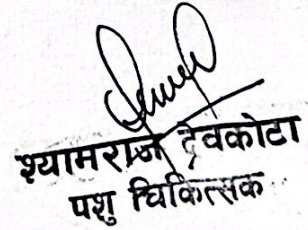 श्यामराज देवकोटा
पशु चिकित्सक